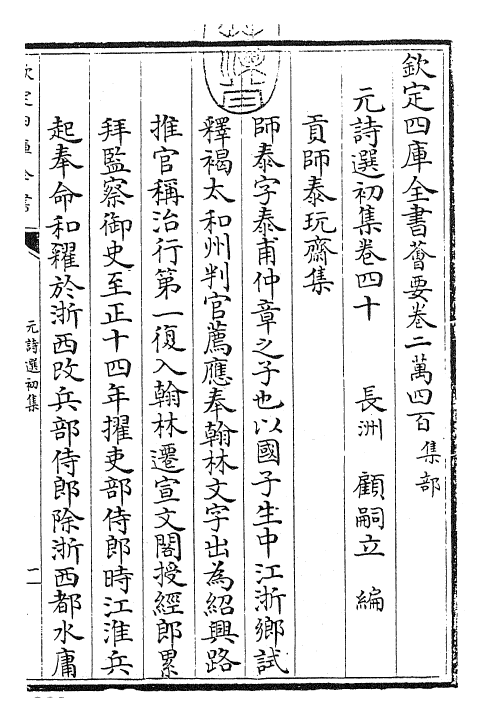 欽定四庫全書薈要卷二萬四百 集部
元詩選初集卷四十 長洲 顧嗣立 編
貢師泰玩齋集
師泰字泰甫仲章之子也以國子生中江浙鄉試
釋褐太和州判官薦應奉翰林文字出為紹興路
推官稱治行第一復入翰林遷宣文閣授經郎累
拜監察御史至正十四年擢吏部侍郎時江淮兵
起奉命和糴於浙西改兵部侍郎除浙西都水庸
欽定四庫全書
元詩選初集
一